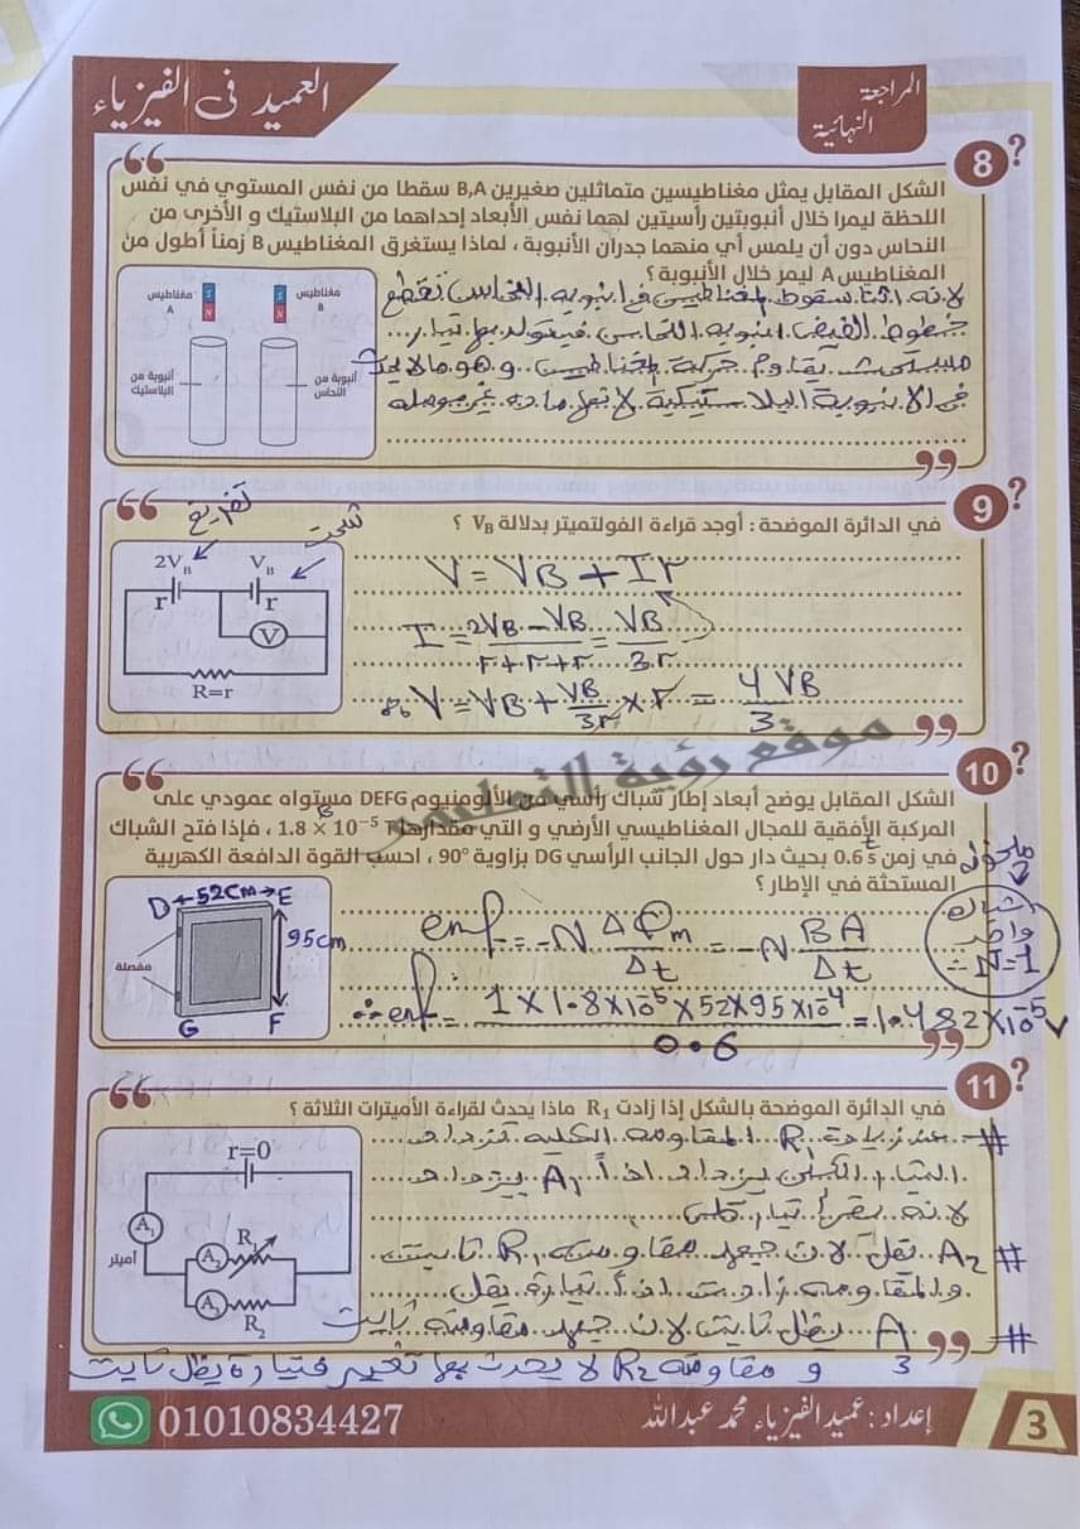 العميد فى الفيزياء
المراجعة
النهائية
8
الشكل المقابل يمثل مغناطيسين متماثلين صغيرين B,A سقطا من نفس المستوي في نفس
اللحظة ليمرا خلال أنبوبتين رأسيتين لهما نفس الأبعاد إحداهما من البلاستيك و الأخرى من
النحاس دون أن يلمس أي منهما جدران الأنبوبة ، لماذا يستغرق المغناطيس B زمناً أطول من
المغناطيس A ليمر خلال الأنبوبة ؟
مغناطيس A
مغناطيس B
S
N
S
N
أنبوبة من البلاستيك
أنبوبة من النحاس
لانه اثناء سقوط المغناطيس في انبوبه النحاس تقطع
خطوط الفيض انبوبه النحاس فيتولد بها تيار
مستحث يقاوم حركة المغناطيس وهو ما لا يحدث
في الانبوبة البلاستيكية لانها ماده غير موصله
9
في الدائرة الموضحة : أوجد قراءة الفولتميتر بدلالة VB ؟
تفريغ
شحن
2VB
VB
r
r
V
R=r
V = VB + Ir
I = 2VB - VB / r + r + r = VB / 3r
∴ V = VB + VB/3r × r = 4VB/3
موقع رؤية التعليمي
10
الشكل المقابل يوضح أبعاد إطار شباك رأسي من الألومنيوم DEFG مستواه عمودي على
المركبة الأفقية للمجال المغناطيسي الأرضي و التي مقدارها 1.8 × 10⁻⁵ T ، فإذا فتح الشباك
في زمن 0.6 s بحيث دار حول الجانب الرأسي DG بزاوية 90° ، احسب القوة الدافعة الكهربية
المستحثة في الإطار ؟
B
t
ملحوظه
شباك
واحد
∴ N=1
D ← 52cm → E
95cm
مفصلة
G
F
emf = -N ΔΦm / Δt = -N BA / Δt
∴ emf = 1 × 1.8×10⁻⁵ × 52×95×10⁻⁴ / 0.6 = 1.482×10⁻⁵ V
11
في الدائرة الموضحة بالشكل إذا زادت R1 ماذا يحدث لقراءة الأميترات الثلاثة ؟
r=0
A1
أميتر
A2
R1
A3
R2
# المقاومه الكليه
A1
لانه يقرأ تيار كلى
# A2 تقل لان جهد مقاومته R1 ثابت
والمقاومه زادت اذاً تياره يقل
# A3 يظل ثابت لان جهد مقاومته ثابت
و مقاومته R2 لا يحدث بها تغيير فتياره يظل ثابت
01010834427
إعداد : عميد الفيزياء محمد عبدالله
3